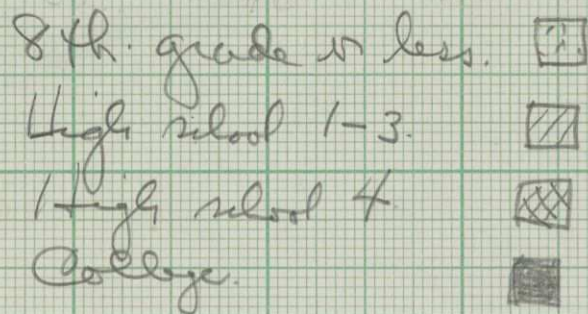 8th. grade or less.
High school 1-3.
High school 4
College.